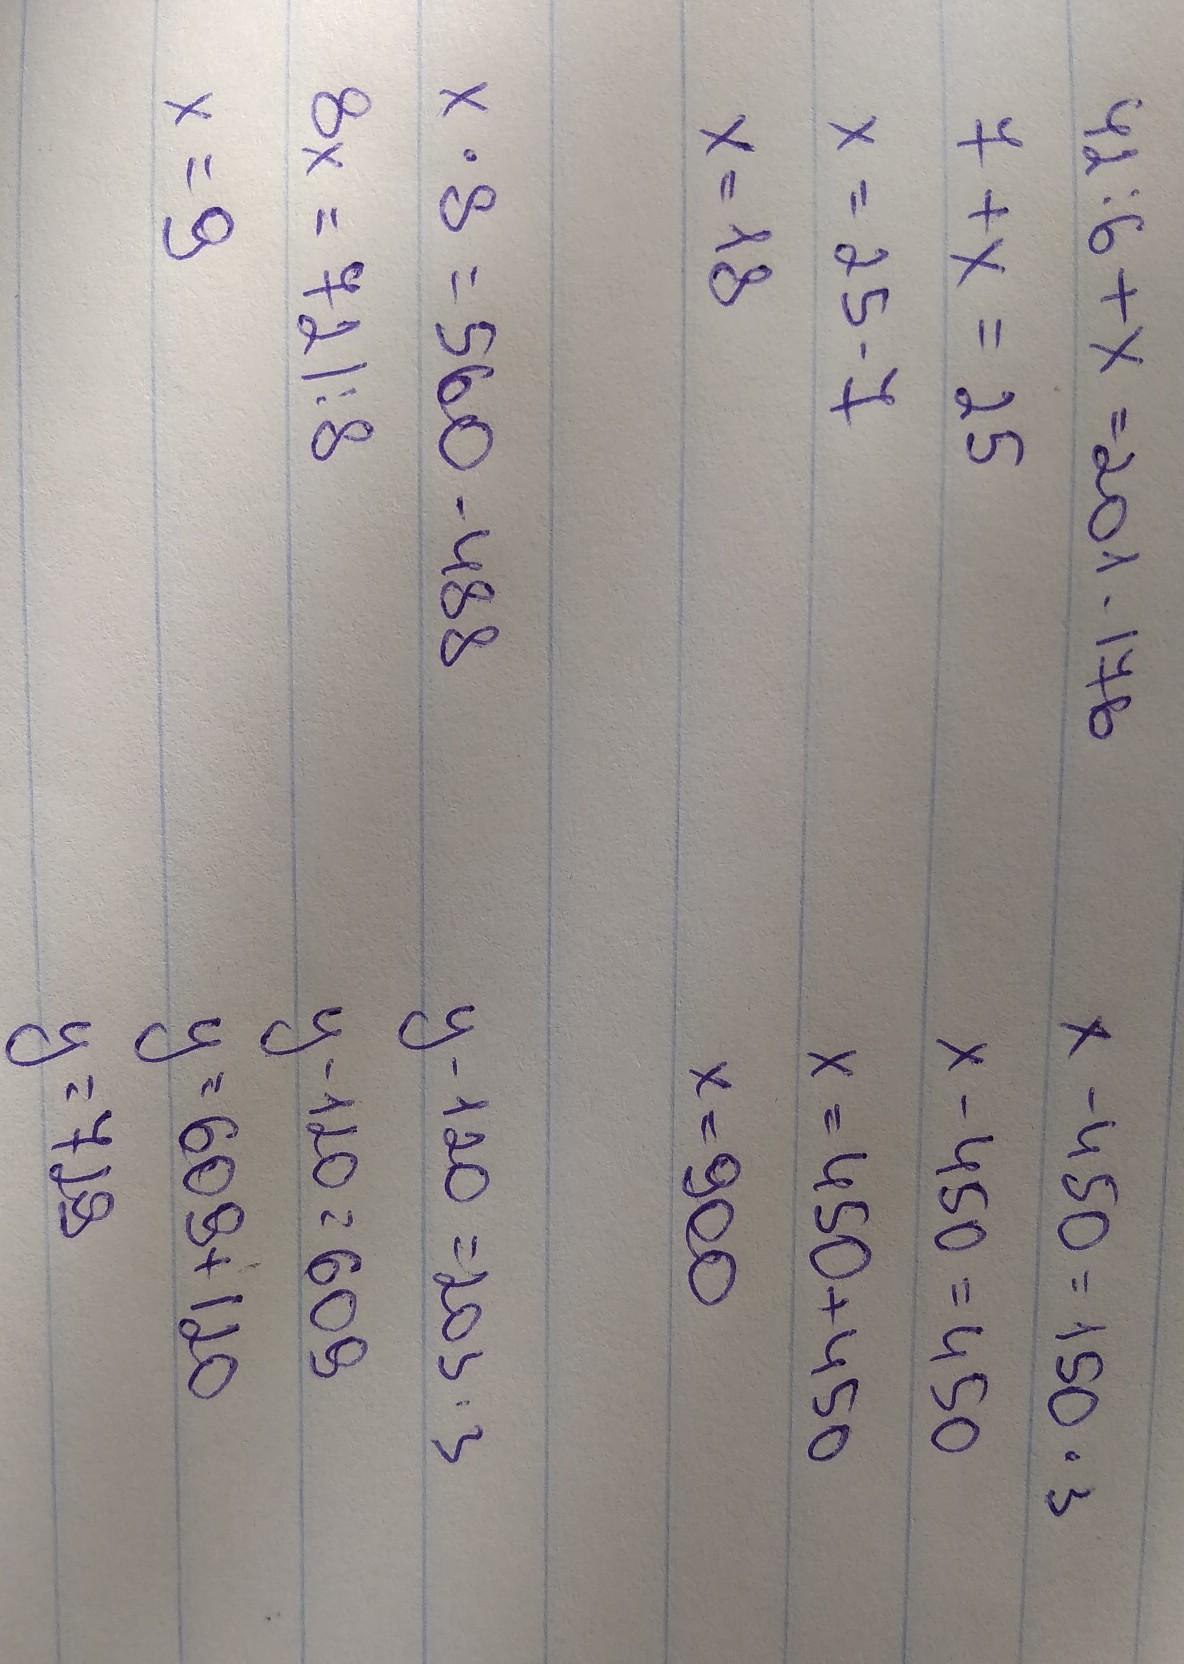 42:6+x=201-176
7+x=25
x=25-7
x=18
x-450=150·3
x-450=450
x=450+450
x=900
x·8=560-488
8x=72|:8
x=9
y-120=203·3
y-120=609
y=609+120
y=729